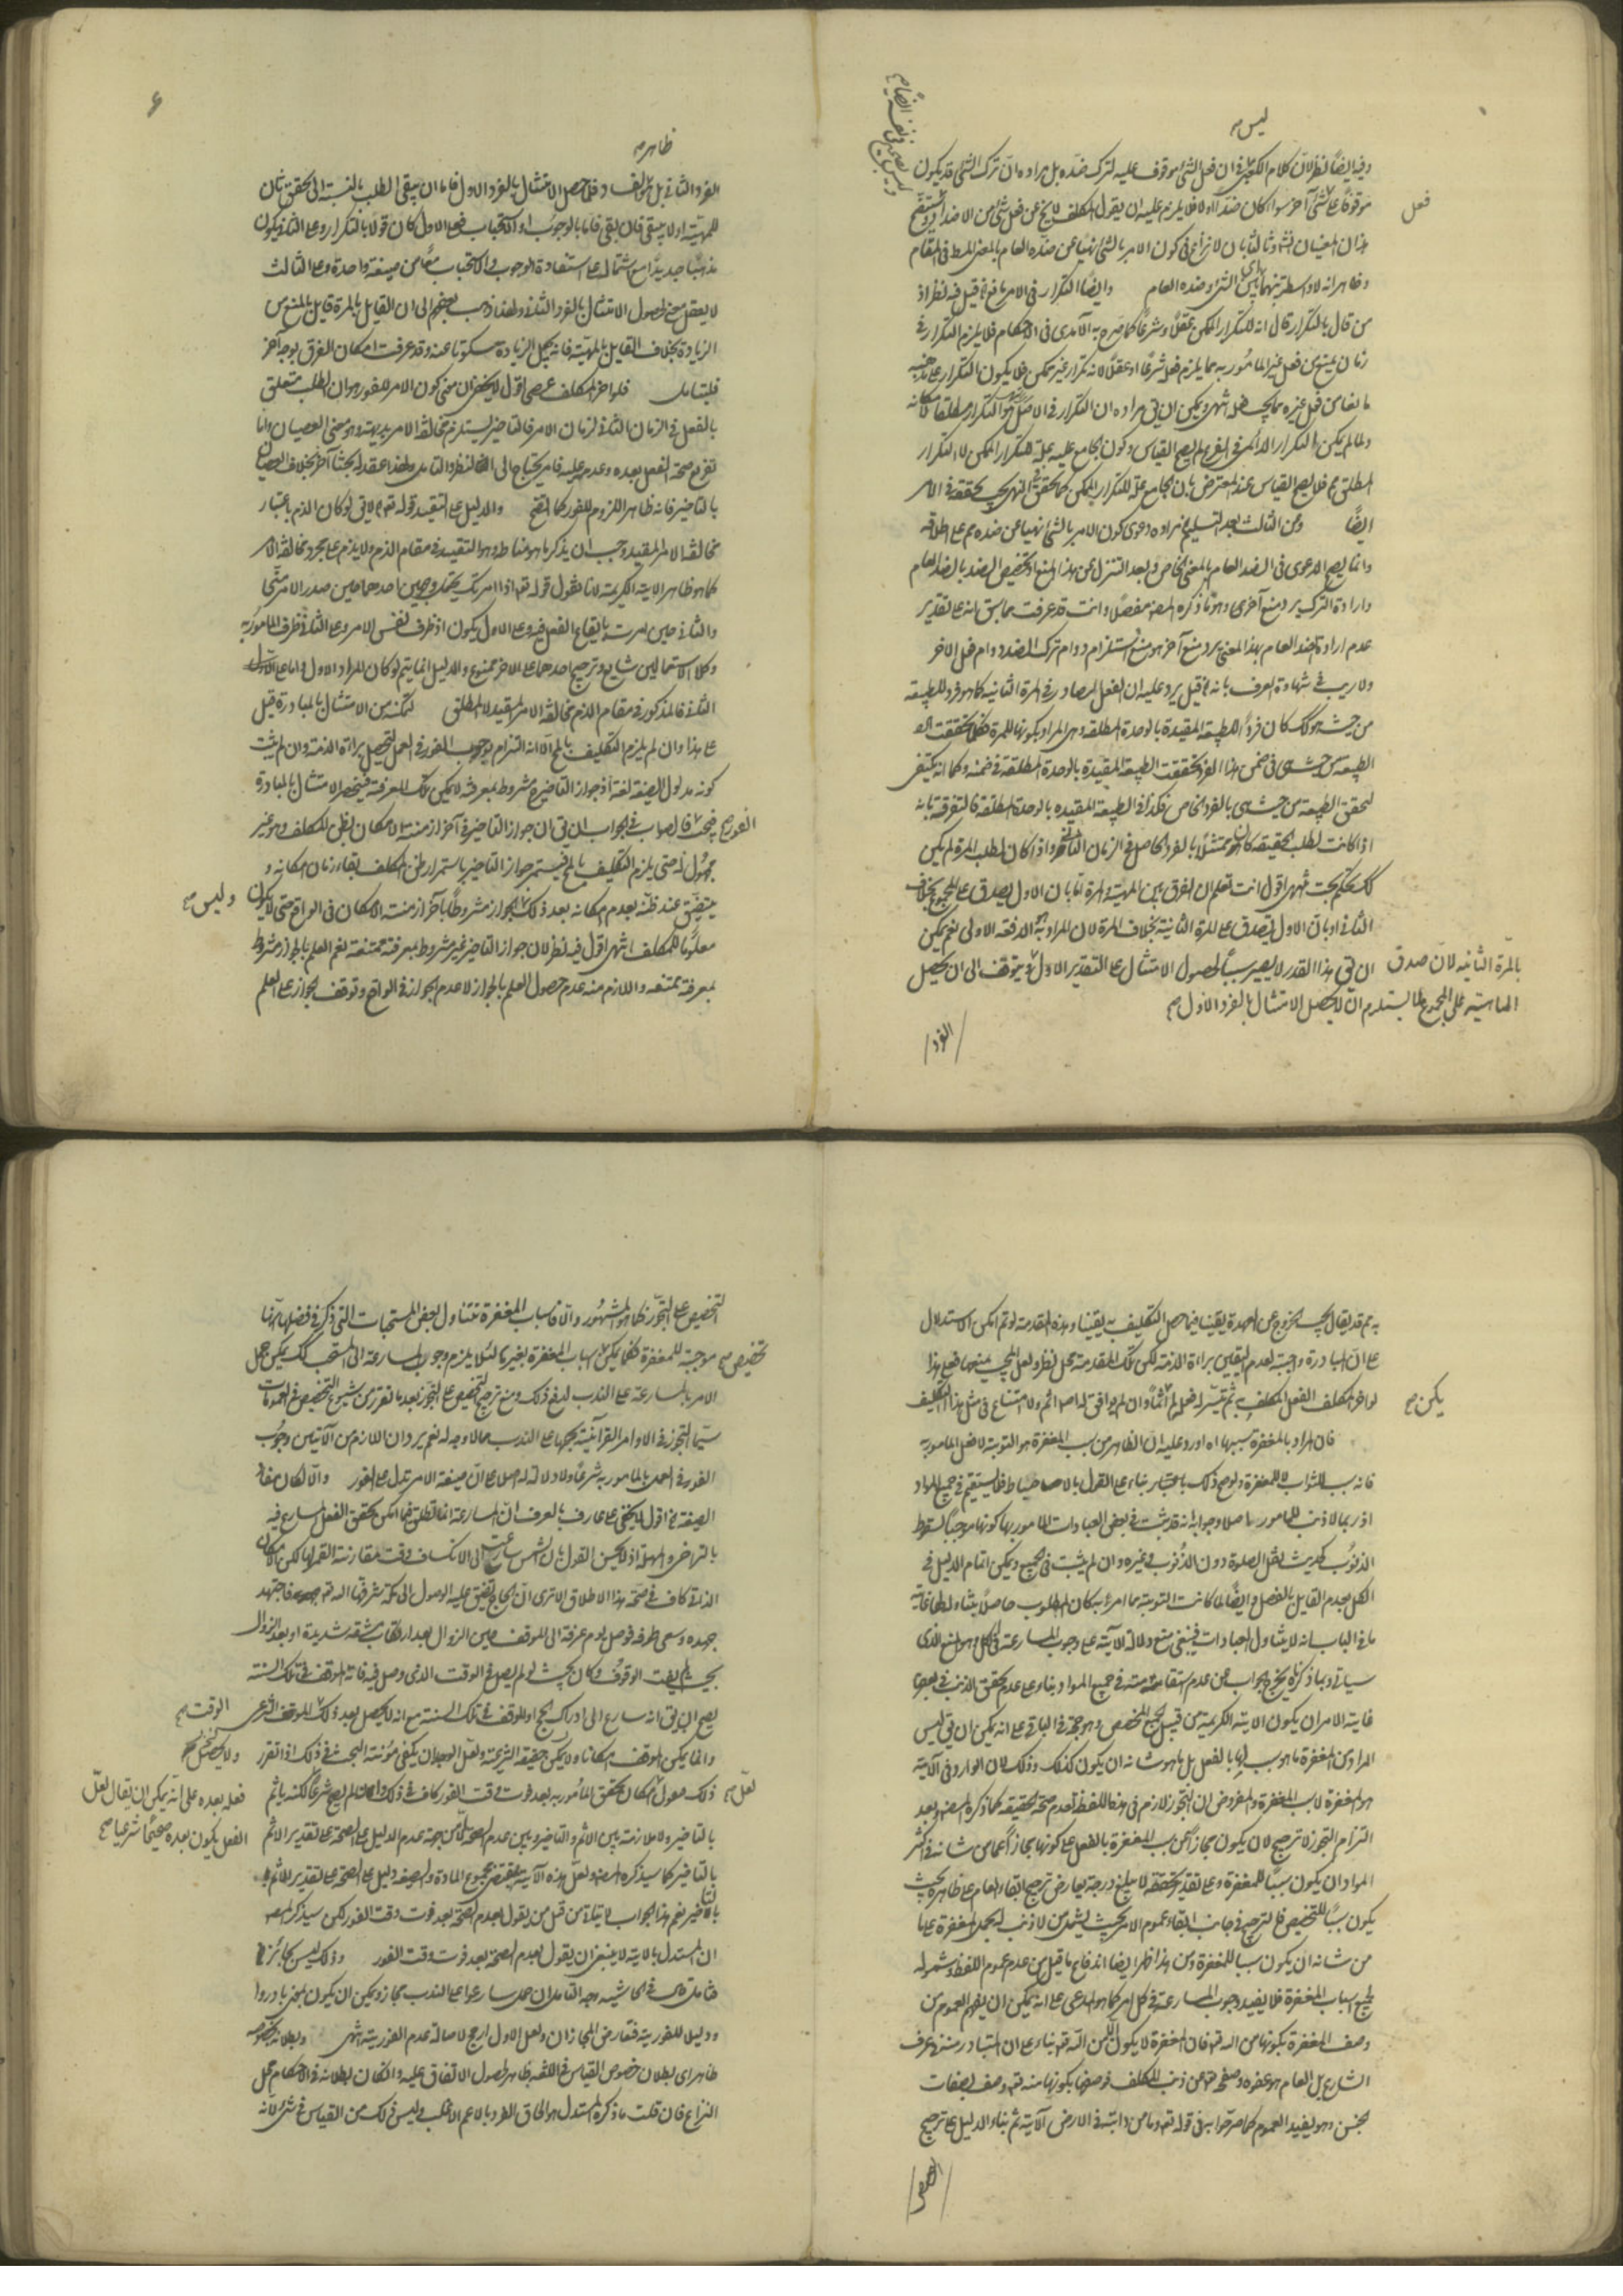 ليس صح
وفيه ايضا نظر لان كلام الكعبي في ان فعل الشئ موقوف عليه لترك ضده بل مراده ان ترك الشئ قد يكون
موقوفا على شئ آخر سواء كان ضدا اولا فلا يلزم عليه ان يقول المكلف لا يخ عن فعل شئ من الاضداد
فعل
هذان المعنيان وثالثا بان لا نزاع في كون الامر بالشئ نهيا عن ضده العام بالمعنى في المقام
وظاهر انه لا واسطة بينهما الشئ وضده العام وايضا التكرار في الامر مانع قيل فيه نظر اذ
من قال بالتكرار قال انه للتكرار الممكن عقلا وشرعا كما صرح به الآمدي في الاحكام فلا يلزم التكرار في
زمان يمنع من فعل غير المأمور به مما يلزم فعله شرعا او عقلا لانه تكرار غير ممكن فلا يكون التكرار على مذهبه
مانعا من فعل غيره مما يجب فعله انتهى ويمكن ان يق مراده ان التكرار في الاصل هو التكرار مطلقا
ولما لم يكن التكرار الدائمي في الفرع لم يصح القياس وكون الجامع عليه علة للتكرار الممكن لا التكرار
المطلق مم فلا يصح القياس عند المعترض بان الجامع علة للتكرار الممكن كما تحقق في النهي يجب تحققه في الامر
ايضا وعن الثالث بعد تسليم مراده دعوى كون الامر بالشئ نهيا عن ضده مم على اطلاقه
وانما يصح الدعوى في الضد العام بالمعنى الخاص وبعد التنزل عن هذا المنع او تخصيص الضد بالضد العام
وارادة الترك يرد منع آخر وهو ما ذكره المص مفصلا وانت قد عرفت مما سبق انه على تقدير
عدم ارادة الضد العام بهذا المعنى يرد منع آخر هو منع استلزام دوام ترك الضد دوام فعل الآخر
ولا ريب في شهادة العرف بانه قيل يرد عليه ان الفعل الصادر في المرة الثانية كما هو فرد للطبيعة
من حيث هو كك كان فردا للطبيعة المقيدة بالوحدة المطلقة وهي المراد بكونها للمرة فكما تحققت
الطبيعة من حيث هي في ضمن هذا الفرد تحققت الطبيعة المقيدة بالوحدة المطلقة في ضمنه وكما انه يكتفى
لتحقق الطبيعة من حيث هي بالفرد الخاص فكذا في الطبيعة المقيدة بالوحدة المطلقة فالتفرقة بانه
اذا كانت لطلب الحقيقة كان ممتثلا بالفرد الحاصل في الزمان الثاني واذا كان لطلب المرة لم يكن
كك تحكم بحت انتهى اقول انت تعلم ان الفرق بين المهية والمرة اما بان الاول يصدق على المجموع بخلاف
الثاني او بان الاول يصدق على المرة الثانية بخلاف المرة لان المراد بها الدفعة الاولى نعم يمكن
ان يق هذا القدر لا يصير سببا لحصول الامتثال على التقدير الاول ويتوقف الى ان يحصل
بالمرة الثانية لان صدق
الماهية على المجموع لما يستلزم ان لا يحصل الامتثال بالفرد الاول صح
الفرد
ظاهر صح
الفرد الثاني بل مؤلفا وفلما حصل الامتثال بالفرد الاول فاما ان يبقى الطلب بالنسبة الى تحقق ثان
للمهية او لا يبقى فان بقي فاما بالوجوب او الاستحباب فعلى الاول كان قولا بالتكرار وعلى الثاني يكون
مذهبا جديدا مع اشتماله على استفادة الوجوب والاستحباب معا من صيغة واحدة وعلى الثالث
لا يعقل معنى لحصول الامتثال بالفرد الثاني ولهذا ذهب بعضهم الى ان القايل بالمرة قايل بالمنع من
الزيادة بخلاف القايل بالمهية فانه يجعل الزيادة مسكوتا عنه وقد عرفت امكان الفرق بوجه آخر
فليتأمل فلو اخر المكلف عصى اقول لا يخفى ان معنى كون الامر للفور هو ان الطلب متعلق
بالفعل في الزمان الثاني لزمان الامر فالتاخير يستلزم مخالفة الامر بديهة وهو معنى العصيان واما
تفريع صحة الفعل بعده وعدمه عليه فامر يحتاج الى النظر والتامل ولهذا عقد له بحثا آخر بخلاف العصيان
بالتاخير فانه ظاهر اللزوم للفور كما اتضح والدليل على التقييد قوله تع لا يق لو كان الذم باعتبار
مخالفة الامر المقيد وجب ان يذكر ما هو مناطه وهو التقييد في مقام الذم ولا يذم على مجرد مخالفة الامر
كما هو ظاهر الاية الكريمة لانا نقول قوله تع اذ امرتك يحتمل وجهين احدهما حين صدر الامر منا
والثاني حين امرت بايقاع الفعل فيه وعلى الاول يكون اذ ظرف لنفس الامر وعلى الثاني ظرف للمأمور به
وكلا الاستعمالين شايع وترجيح احدهما على الاخر ممنوع والدليل انما يتم لو كان المراد الاول واما على
الثاني فالمذكور في مقام الذم مخالفة الامر المقيد لا المطلق تمكنه من الامتثال بالمبادرة قيل
على هذا وان لم يلزم التكليف بالمح الا انه التزام بوجوب الفور في العمل لتحصيل براءة الذمة وان لم يثبت
كونه مدلول الصيغة لغة اذ جواز التاخير مشروط بمعرفة لا يمكن تلك المعرفة فينحصر الامتثال بالمبادرة
الفور صح
فيجب فالصواب في الجواب ان يق ان جواز التاخير في آخر ازمنة الامكان بظن المكلف وهو غير
مجهول له حتى يلزم التكليف بالمح فيستمر جواز التاخير باستمرار ظن المكلف بقاء زمان امكانه و
يتضيق عند ظنه بعدم امكانه بعد ذلك الجواز مشروطا بآخر ازمنة الامكان في الواقع حتى لا يكون
وليس صح
معلوما للمكلف انتهى اقول فيه نظر لان جواز التاخير غير مشروط بمعرفة ممتنعة نعم العلم بالجواز مشروط
بمعرفة ممتنعة واللازم منه عدم حصول العلم بالجواز لا عدم الجواز في الواقع وتوقف الجواز على العلم
به مم قد يقال يجب الخروج عن العهدة يقينا فيما حصل التكليف به يقينا وهذه المقدمة لو تم امكن الاستدلال
على ان المبادرة واجبة لعدم اليقين براءة الذمة لكن تلك المقدمة محل نظر ولعل المجيب يمنعها فعلى هذا
يكن صح
لو اخر المكلف الفعل المكلف به ثم تيسر له فعله لم آثما وان لم يوافق له اصلا اثم ولا امتناع في مثل هذا التكليف
فان المراد بالمغفرة سببها اه اورد عليه ان الظاهر من سبب المغفرة هو التوبة لا فعل المامور به
فانه سبب للثواب لا للمغفرة ولو صح ذلك باعتبار بناء على القول بالاحباط فلا يستقيم في جميع المواد
اذ ربما لا ذنب للمامور اصلا وجوابه انه قد ثبت في بعض العبادات المامور بها كونها موجبا لسقوط
الذنوب كحديث نقل الصلوة دون الذنوب في غيره وان لم يثبت في الجميع ويمكن اتمام الدليل في
الكل بعدم القايل بالفصل وايضا لما كانت التوبة مما امر به كان المطلوب حاصلا
ما في الباب انه لا يتناول العبادات فينبغي منع دلالة الآية على وجوب المسارعة في الكل وهو المنع الذي
سياتي وبما ذكرناه يخرج الجواب عن عدم استقامته في جميع المواد بناء على عدم تحقق الذنب في بعضها
غاية الامر ان يكون الاية الكريمة من قبيل العام المخصص وهو حجة في الباقي على انه يمكن ان يق ليس
المراد من المغفرة ما هو سبب لها بالفعل بل ما هو شانه ان يكون كذلك وذلك لان الوارد في الآية
هو المغفرة لا سبب المغفرة والمفروض ان التجوز لازم في هذا اللفظ لعدم صحة الحقيقة كما ذكره المص وبعد
التزام التجوز لا ترجيح لان يكون مجازا عن سبب المغفرة بالفعل على كونها مجازا عما من شانه في اكثر
المواد ان يكون سببا للمغفرة وعلى تقدير تحققه لا يبلغ درجة يعارض ترجيح ابقاء العام على ظاهره بحيث
يكون سببا للتخصيص فالترجيح في جانب ابقاء عموم الامر بحيث يشمل من لا ذنب له بحمل المغفرة على ما
من شانه ان يكون سببا للمغفرة ومن هذا ظهر ايضا اندفاع ما قيل من عدم عموم اللفظ وشموله
لجميع اسباب المغفرة فلا يفيد وجوب المسارعة في كل امر كما هو المدعى على انه يمكن ان يفهم العموم من
وصف المغفرة بكونها من الله تع فان المغفرة لا يكون الا من الله تع بناء على ان المتبادر منه في عرف
الشارع بل العام هو عفوه وصفحه تع عن ذنب المكلف فوصفها بكونها منه تع وصف بصفات
الجنس وهو يفيد العموم كما صرحوا به في قوله تع وما من دابة في الارض الآية ثم بناء الدليل على ترجيح
التخصيص
التخصيص على التجوز كما هو المشهور والا فاسباب المغفرة تتناول بعض المستحبات التي ذكر في فضلها انها
تخصيص صح
موجبة للمغفرة فكما يمكن اسباب المغفرة بغيرها لئلا يلزم وجوب المسارعة الى المستحب كك يمكن حمل
الامر بالمسارعة على الندب لدفع ذلك ومنع ترجيح التخصيص على التجوز بعد ما تقرر من شيوع التخصيص في العمومات
سيما التجوز في الاوامر القرآنية بحملها على الندب مما لا وجه له نعم يرد ان اللازم من الآيتين وجوب
الفور في العمل بالمامور به شرعا ولا دلالة له اصلا على ان صيغة الامر تدل على الفور والا لكان مفاد
الصيغة فيه اقول لا يخفى على عارف بالعرف ان المسارعة انما تطلق فيما امكن تحقق الفعل المسارع فيه
بالتراخي والمهلة اذ لا يحسن القول بان الشمس سارعت الى الانكساف وقت مقارنة القمر لها لكن الامكان
الذاتي كاف في صحة هذا الاطلاق الا ترى ان الحاج تضيق عليه الوصول الى مكة شرفها الله تع فاجتهد
جهده وسعى طرفه فوصل يوم عرفة الى الموقف حين الزوال بعد ارتكاب مشقة شديدة او بعد الزوال
بحيث لم يفت الوقوف وكان بحيث لو لم يصل في الوقت الذي وصل فيه فاته الموقف في تلك السنة
يصح ان يق انه سارع الى ادراك الحج او الموقف في تلك السنة مع انه لا يحصل بعد ذلك الموقف الشرعي
الوقت صح
وانما يمكن الموقف امكانا ولا يمكن حقيقة الشرعية ولعل الوجدان يكفي مؤنة البحث في ذلك اذا تقرر
لعل صح
ذلك فنقول امكان تحقق المأمور به بعد فوت وقت الفور كاف في ذلك وان لم يصح شرعا لكنه ياثم
فعله بعده على انه يمكن ان يقال لعل
الفعل يكون بعده صحيحا شرعيا صح
بالتاخير ولا ملازمة بين الاثم والتاخير وبين عدم الصحة الا من جهة عدم الدليل على الصحة على تقدير الاثم
بالتاخير كما سيذكره المص ولعل هذه الآية بمقتضى مجموع المادة والصيغة دليل على الصحة على تقدير الاثم
بالتاخير نعم هذا الجواب لا يتاتى من قبل من يقول بعدم الصحة بعد فوت وقت الفور لكن سيذكر المص
ان المستدل بالاية لا ينبغي ان يقول بعدم الصحة بعد فوت وقت الفور وذلك ليس بجائز اه
فتامل قال في الحاشية وجه التامل ان حمل سارعوا على الندب مجاز ويمكن ان يكون بمعنى بادروا
ودليلا للفورية فتعارض المجازان ولعل الاول ارجح لاصالة عدم الفورية انتهى وبطلانه بخصوصه
ظاهر اى بطلان خصوص القياس في اللغة ظاهر لحصول الاتفاق عليه وان كان بطلانه في الاحكام محل
النزاع فان قلت ما ذكره المستدل هو الحاق الفرد بالاعم الاغلب وليس ذلك من القياس في شئ لانه